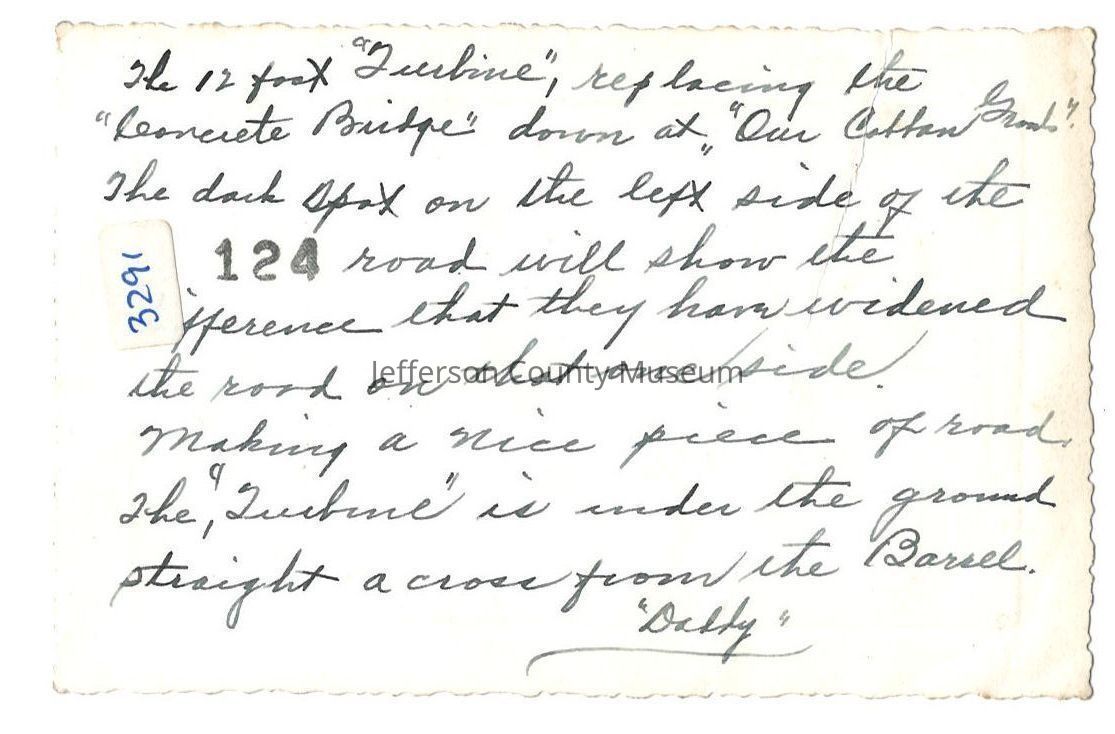 The 12 foot "Turbine", replacing the
"Concrete Bridge" down at, "Our Cotton Grounds".
The dark spot on the left side of the
124 road will show the
3291
ifference that they have widened
the road on that one side.
Jefferson County Museum
Making a nice piece of road.
The, "Turbine" is under the ground
straight across from the Barrel.
"Daddy"